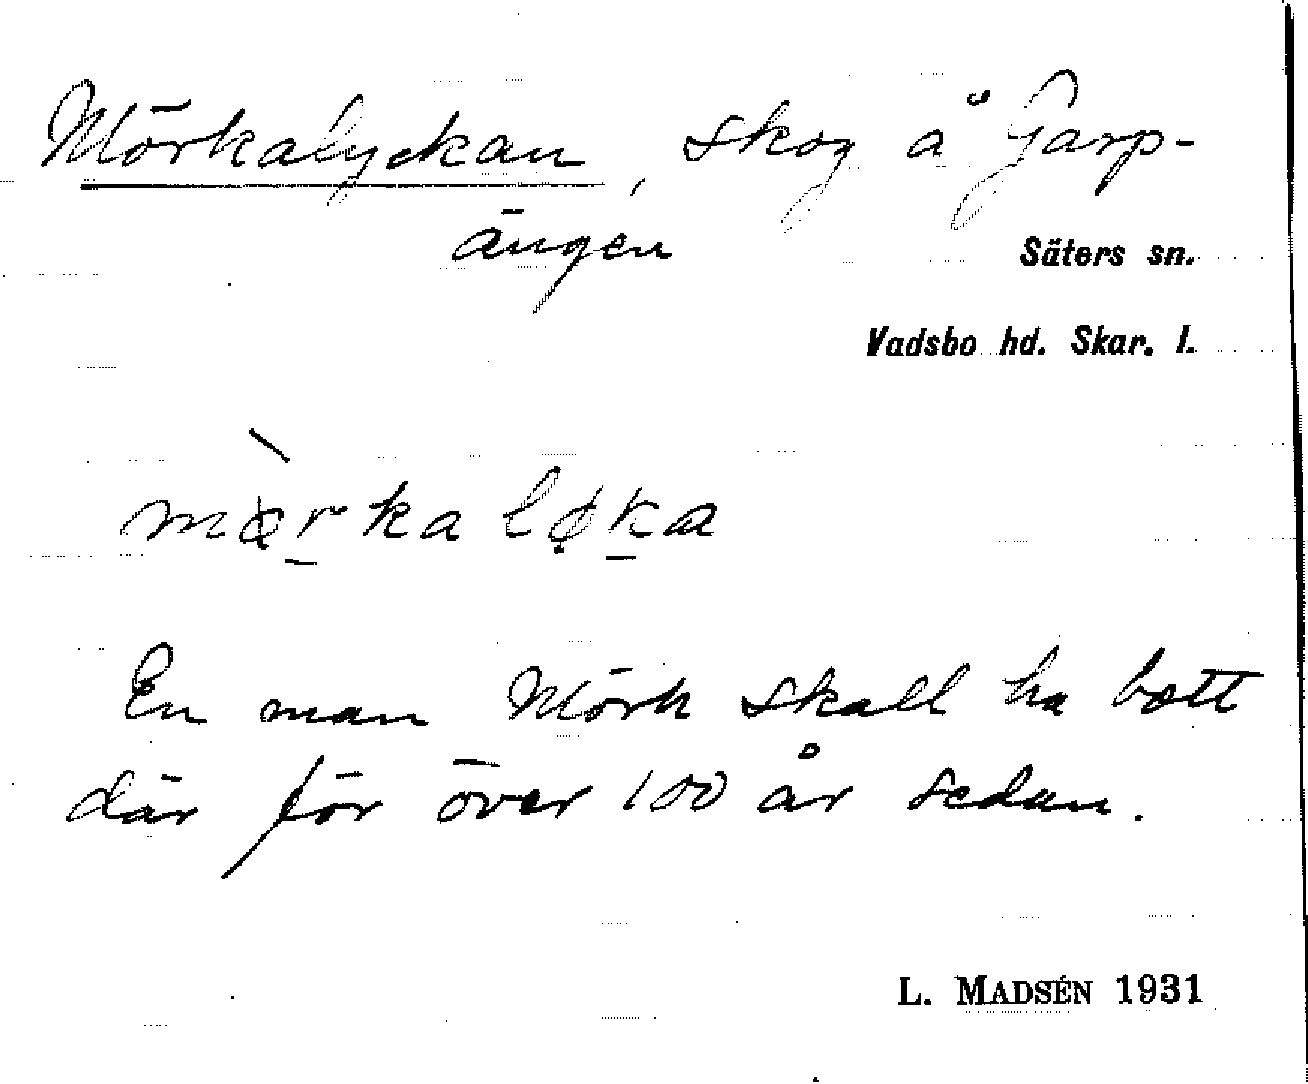 Mörkalyckan, skog å Garp-
ängen
Säters sn.
Vadsbo hd. Skar. l.
mörka løka
En man Mörk skall ha bott
där för över 100 år sedan.
L. MADSÉN 1931